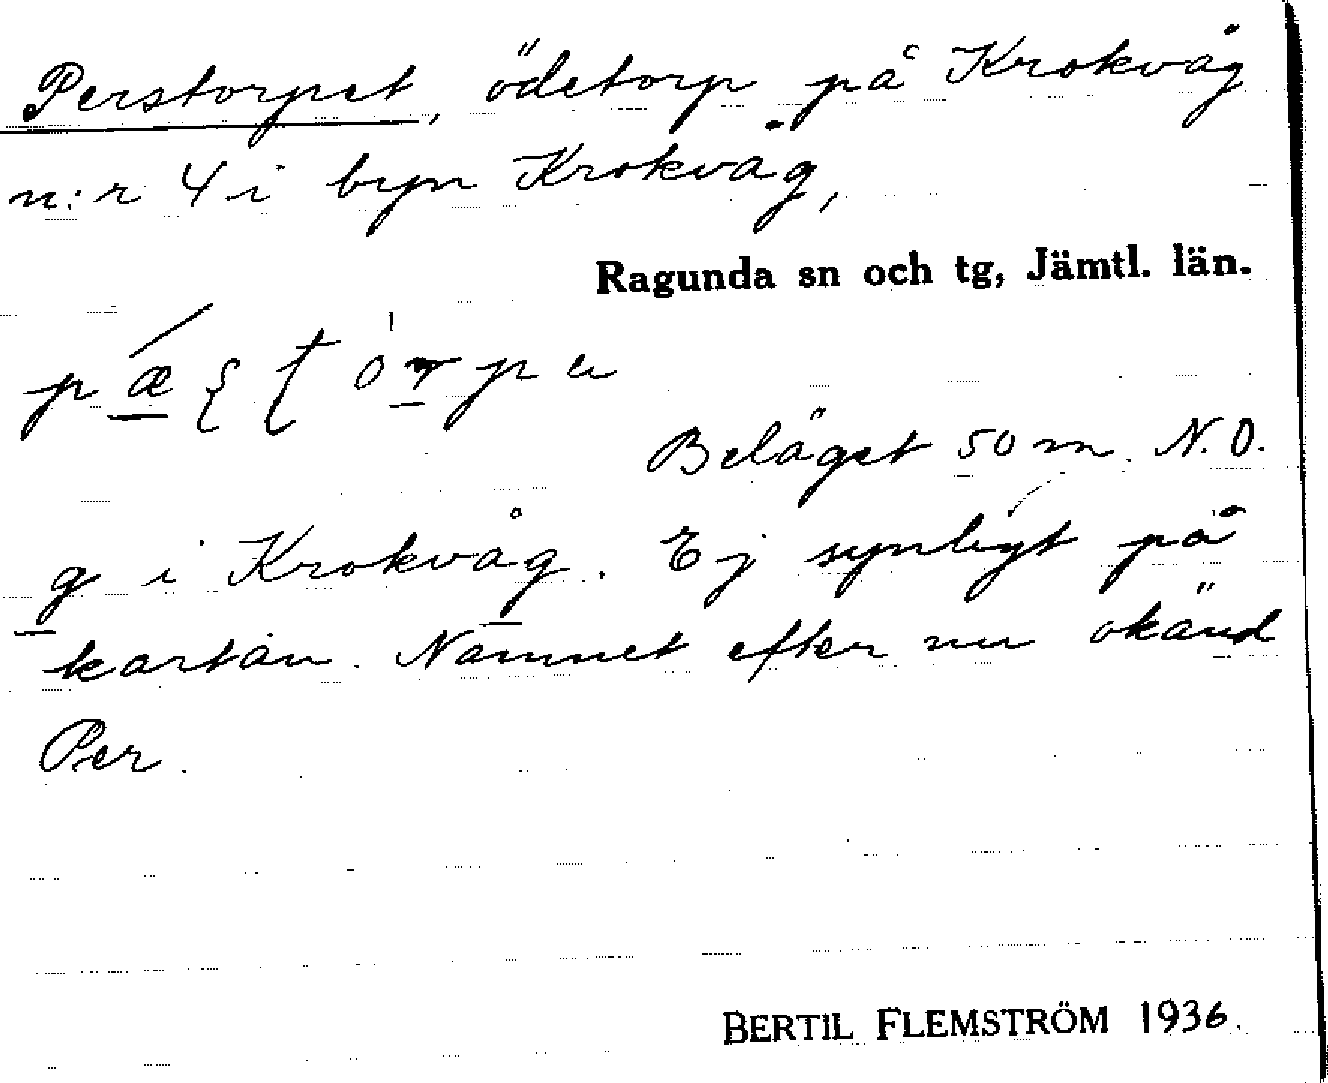 Perstorpet, ödetorp på Krokvåg
n:r 4 i byn Krokvåg,
Ragunda sn och tg, Jämtl. län.
Beläget 50 m. N.O.
g i Krokvåg. Ej synligt på
kartan. Namnet efter nu okänd
Per.
BERTIL FLEMSTRÖM 1936.